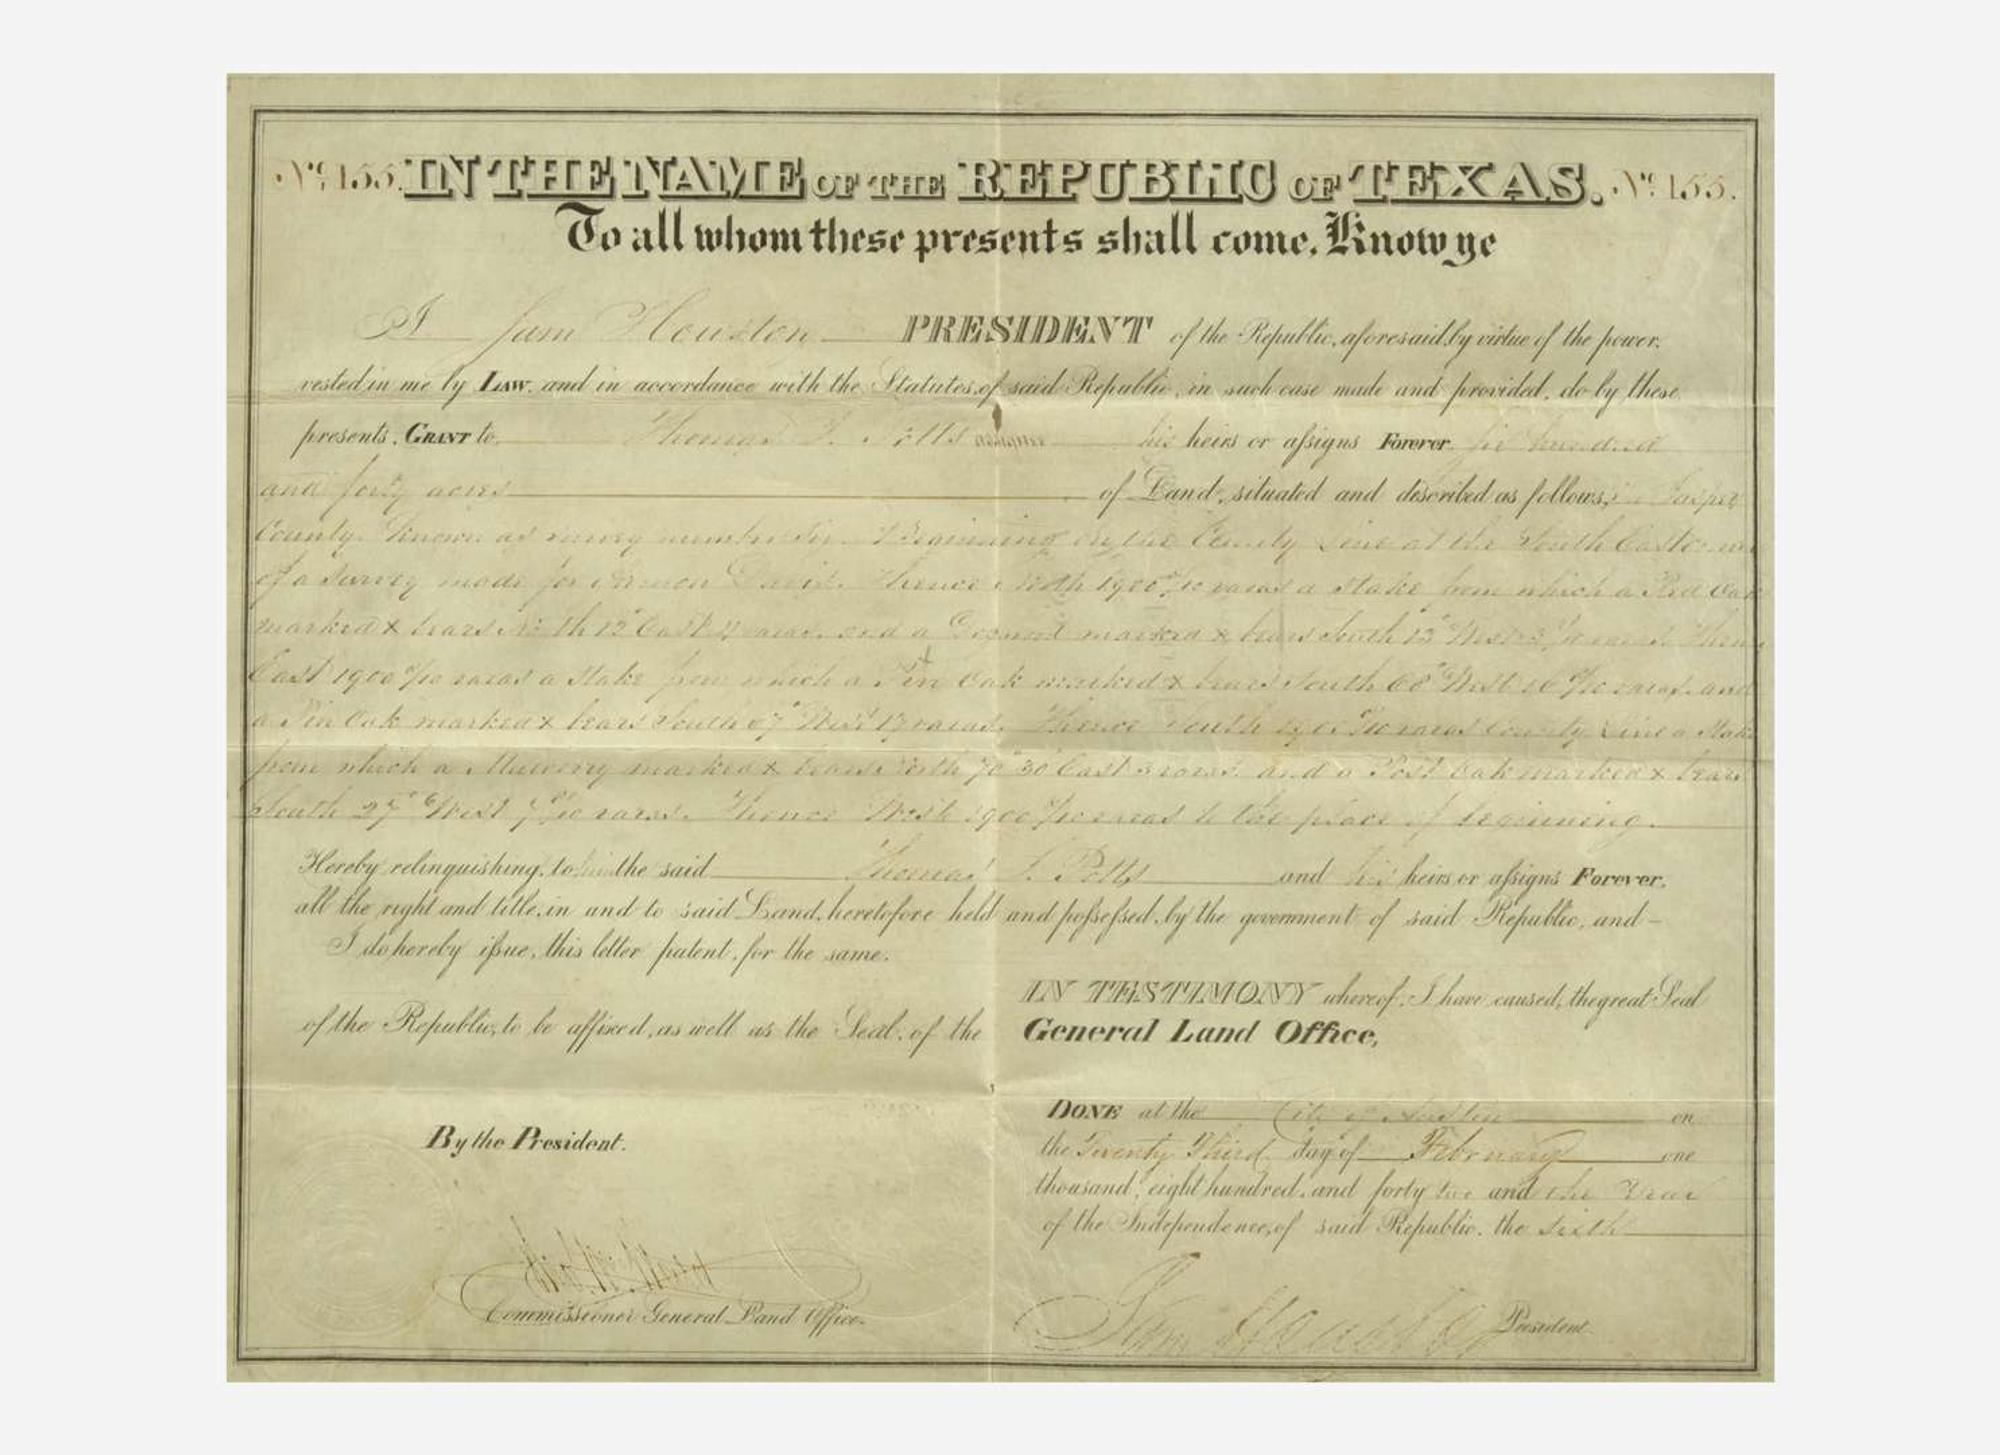 No. 155. IN THE NAME OF THE REPUBLIC OF TEXAS. No. 155.
To all whom these presents shall come, Know ye
I Sam Houston PRESIDENT of the Republic, aforesaid, by virtue of the power,
vested in me by LAW, and in accordance with the Statutes, of said Republic, in such case made and provided, do by these
presents, GRANT to Thomas S. Potts assignee his heirs or assigns Forever Six hundred
and forty acres of Land, situated and described as follows, in Jasper
County. Known as survey number Six. Beginning on the County Line at the South East corner
of a Survey made for Davis. Thence North 1900 varas a Stake from which a Red Oak
marked X bears North 12° East varas. and a Dogwood marked X bears South 13° West varas. Thence
East 1900 8/10 varas a Stake from which a Pin Oak marked X bears South 68° West varas. and
a Pin Oak marked X bears South 67° West 17 varas. Thence South 1900 8/10 varas County Line a Stake
from which a Mulberry marked X bears North 70° 30' East 3 varas. and a Post Oak marked X bears
South 27° West varas. Thence West 1900 8/10 varas to the place of beginning.
Hereby relinquishing, to him the said Thomas S. Potts and his heirs or assigns Forever,
all the right and title, in and to said Land, heretofore held and possessed, by the government of said Republic, and –
I do hereby issue, this letter patent, for the same.
IN TESTIMONY whereof, I have caused, the great Seal
of the Republic, to be affixed, as well as the Seal, of the General Land Office,
DONE at the City of Austin on
the Twenty Third day of February one
thousand, eight hundred, and forty two and the Year
of the Independence, of said Republic, the Sixth
By the President.
Commissioner General Land Office.
Sam Houston President